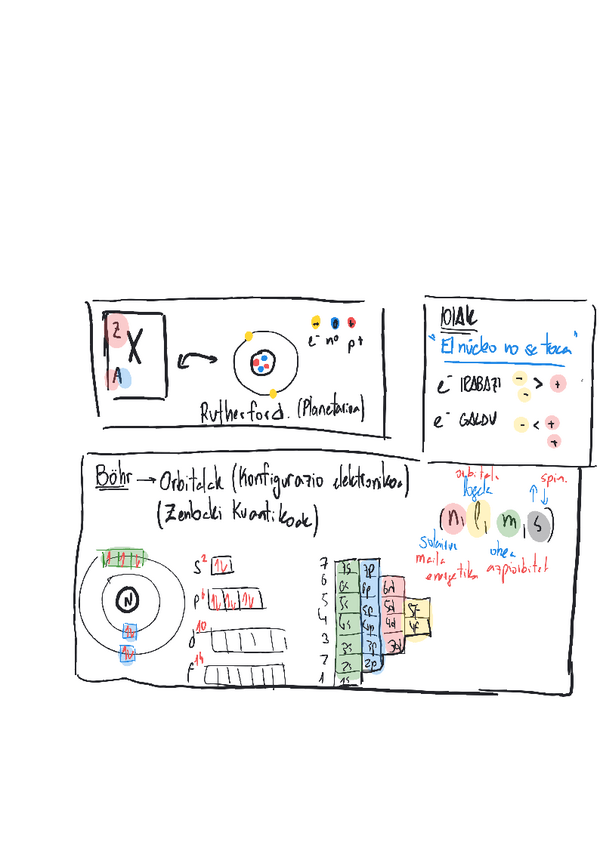 Z
X
A
e⁻ nº p+
Rutherford. (Planetarioa)
IOIAK
"El núcleo no se toca"
e⁻ IRABAZI - - > +
e⁻ GALDU - < + +
Böhr → Orbitalak (Konfigurazio elektronikoa)
(Zenbaki Kuantikoak)
N
s²
p⁶
d¹⁰
f¹⁴
7 7s 7p
6 6s 6p 6d
5 5s 5p 5d 5f
4 4s 4p 4d 4f
3 3s 3p 3d
2 2s 2p
1 1s
orbitala spin.
logela ↑↓
(n, l, m, s)
maila ohea
energetika azpiorbital